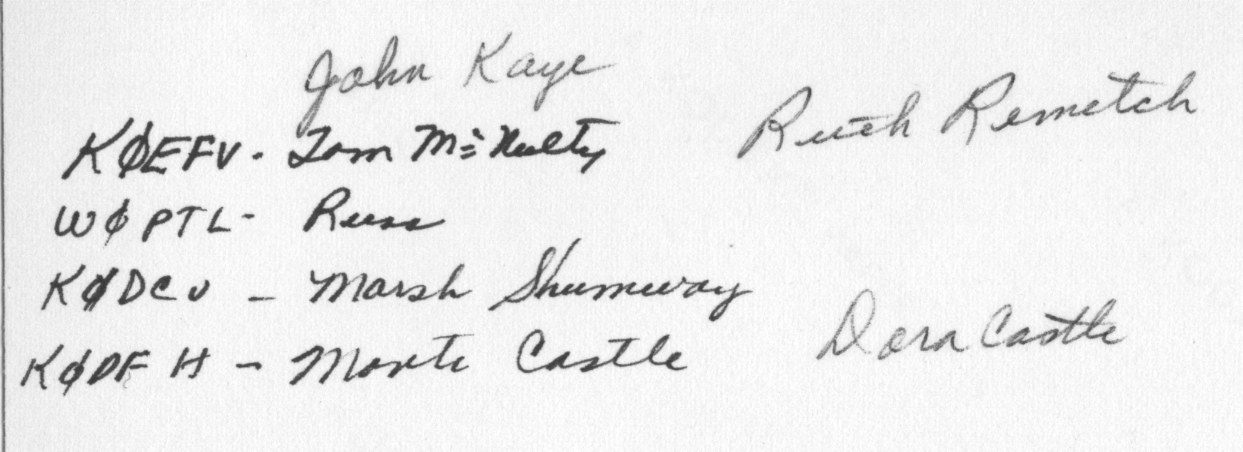 John Kaye
KØEFV - Tom McNulty
Ruth Remetch
WØPTL - Russ
KØDCU - Marsh Shumway
KØDFH - Monte Castle
Dora Castle